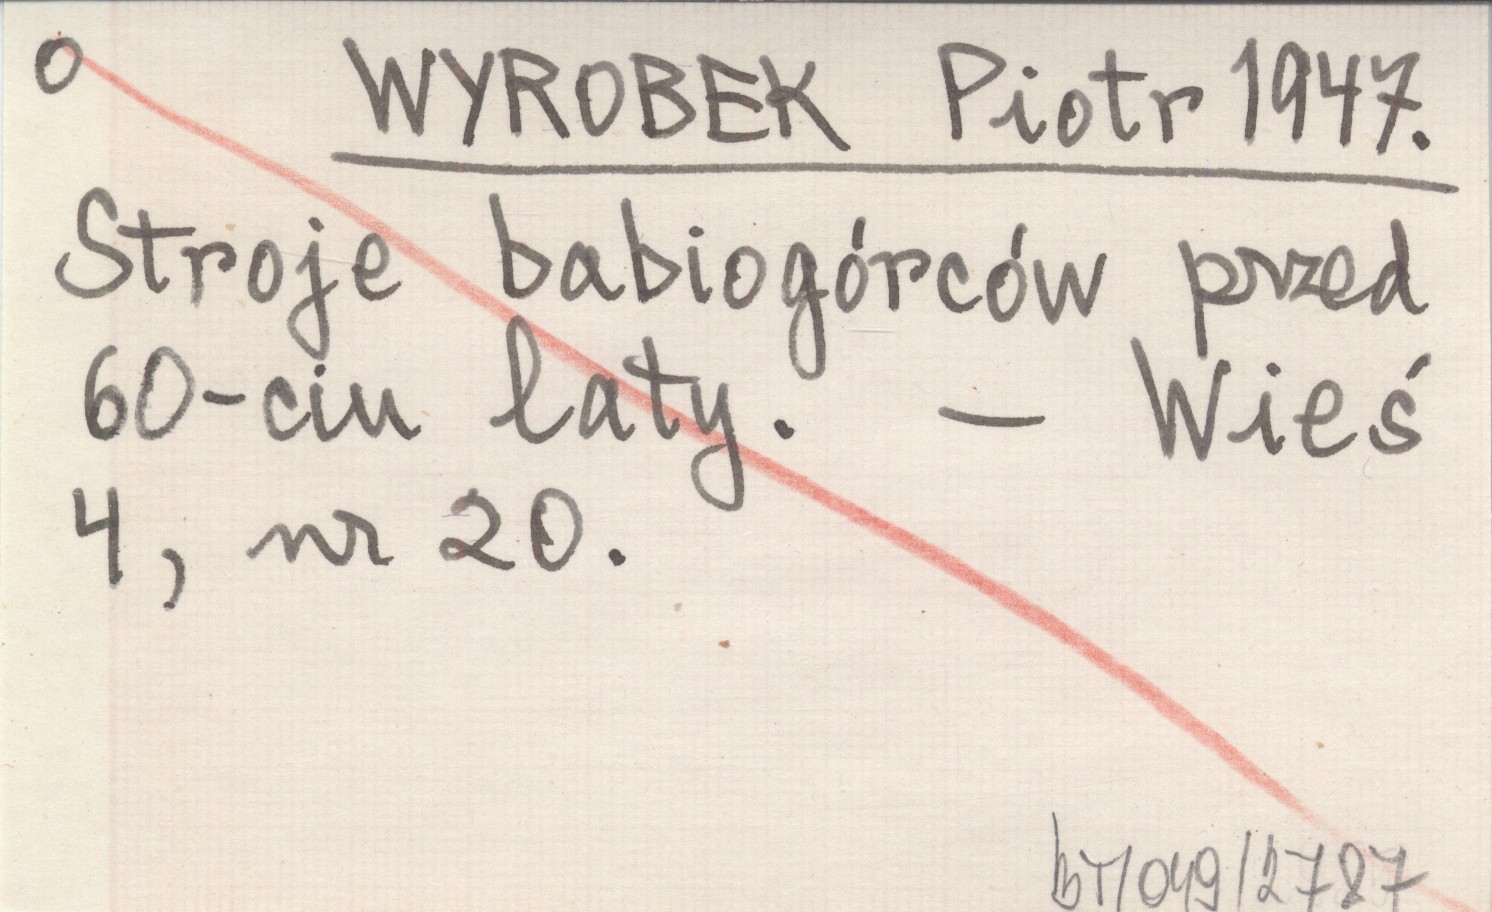 O WYROBEK Piotr 1947.
Stroje babiogórców przed
60-ciu laty. — Wieś
4, nr 20.
bT/049/2787